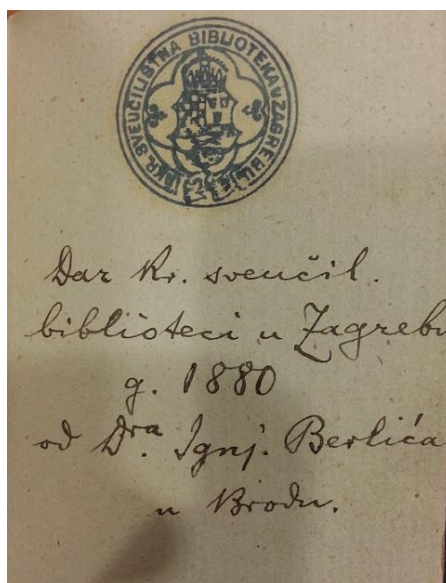 KR. SVEUČILIŠTNA BIBLIOTEKA U ZAGREBU
Dar Kr. sveučil.
biblioteci u Zagrebu
g. 1880
od Dra. Ignj. Berlića
u Brodu.